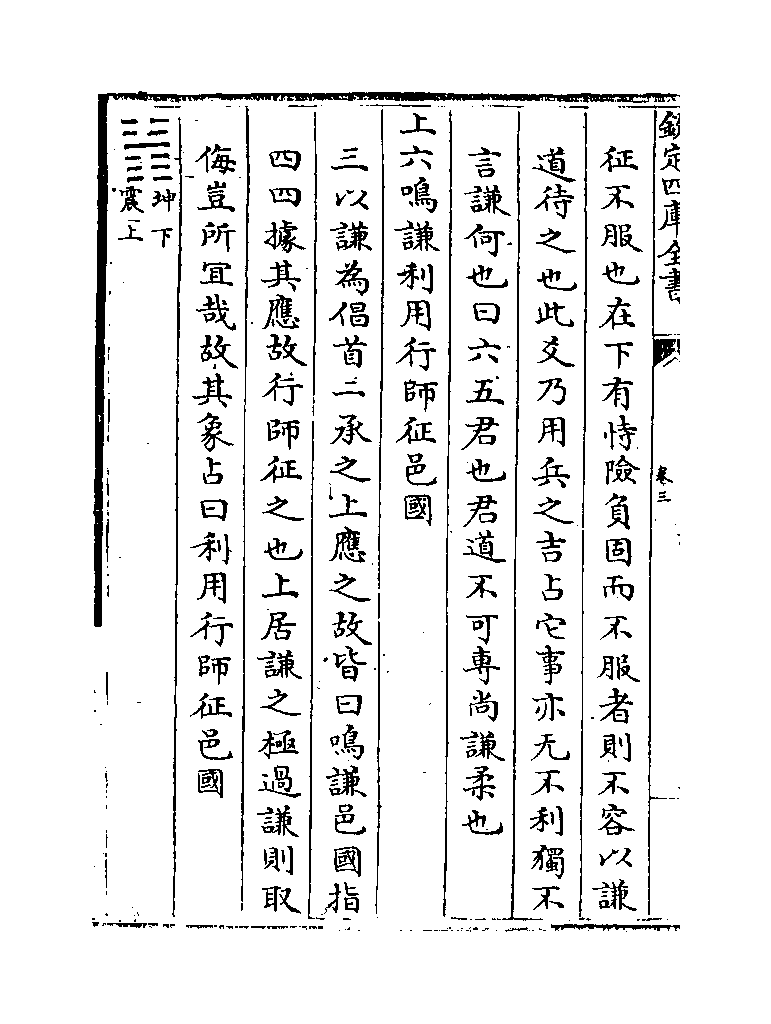 欽定四庫全書
卷三
征不服也在下有恃險負固而不服者則不容以謙
道待之也此爻乃用兵之吉占它事亦无不利獨不
言謙何也曰六五君也君道不可專尚謙柔也
上六鳴謙利用行師征邑國
三以謙為倡首二承之上應之故皆曰鳴謙邑國指
四四據其應故行師征之也上居謙之極過謙則取
侮豈所宜哉故其象占曰利用行師征邑國
坤下
震上